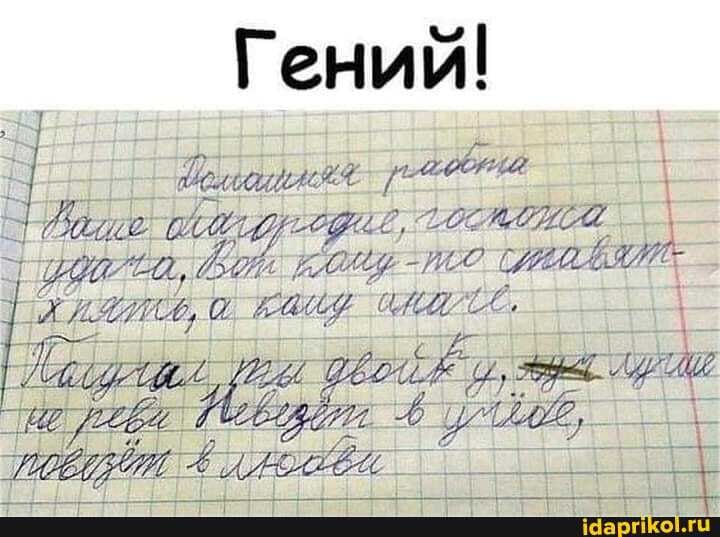 Гений!
Домашняя работа
Ваше благородие, госпожа
удача, Вот кому-то ставят-
х пять, а кому иначе.
Получал ты двойку, луч лучше
не реви Невезёт в учёбе,
повезёт в любви
idaprikol.ru